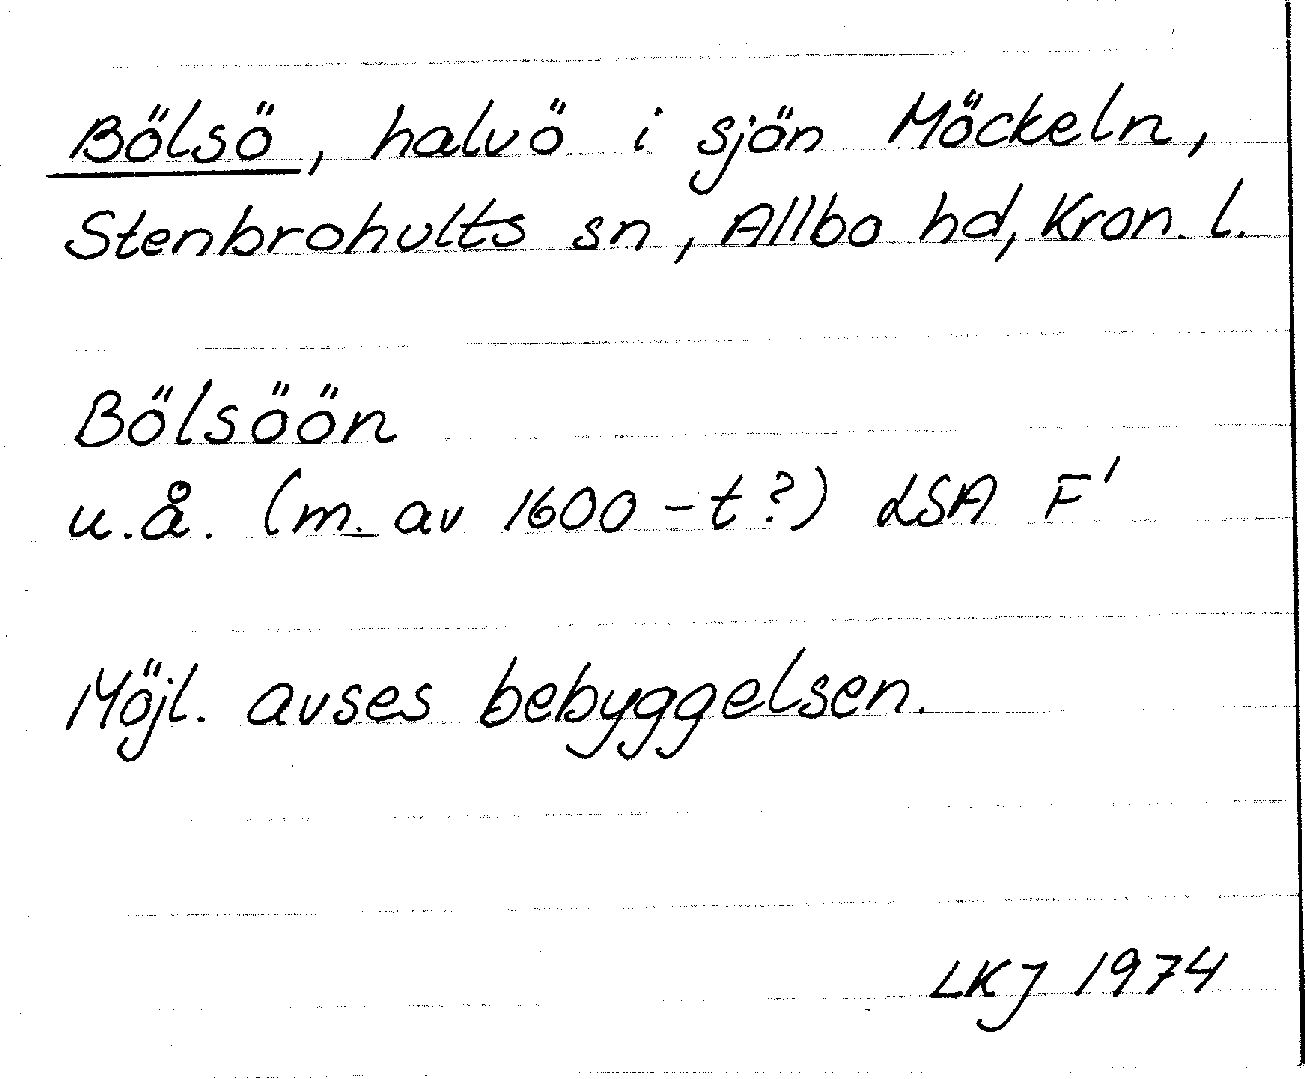 Bölsö, halvö i sjön Möckeln,
Stenbrohults sn, Allbo hd, Kron. l.
Bölsöön
u.å. (m. av 1600-t?) LSA F'
Möjl. avses bebyggelsen.
LKJ 1974